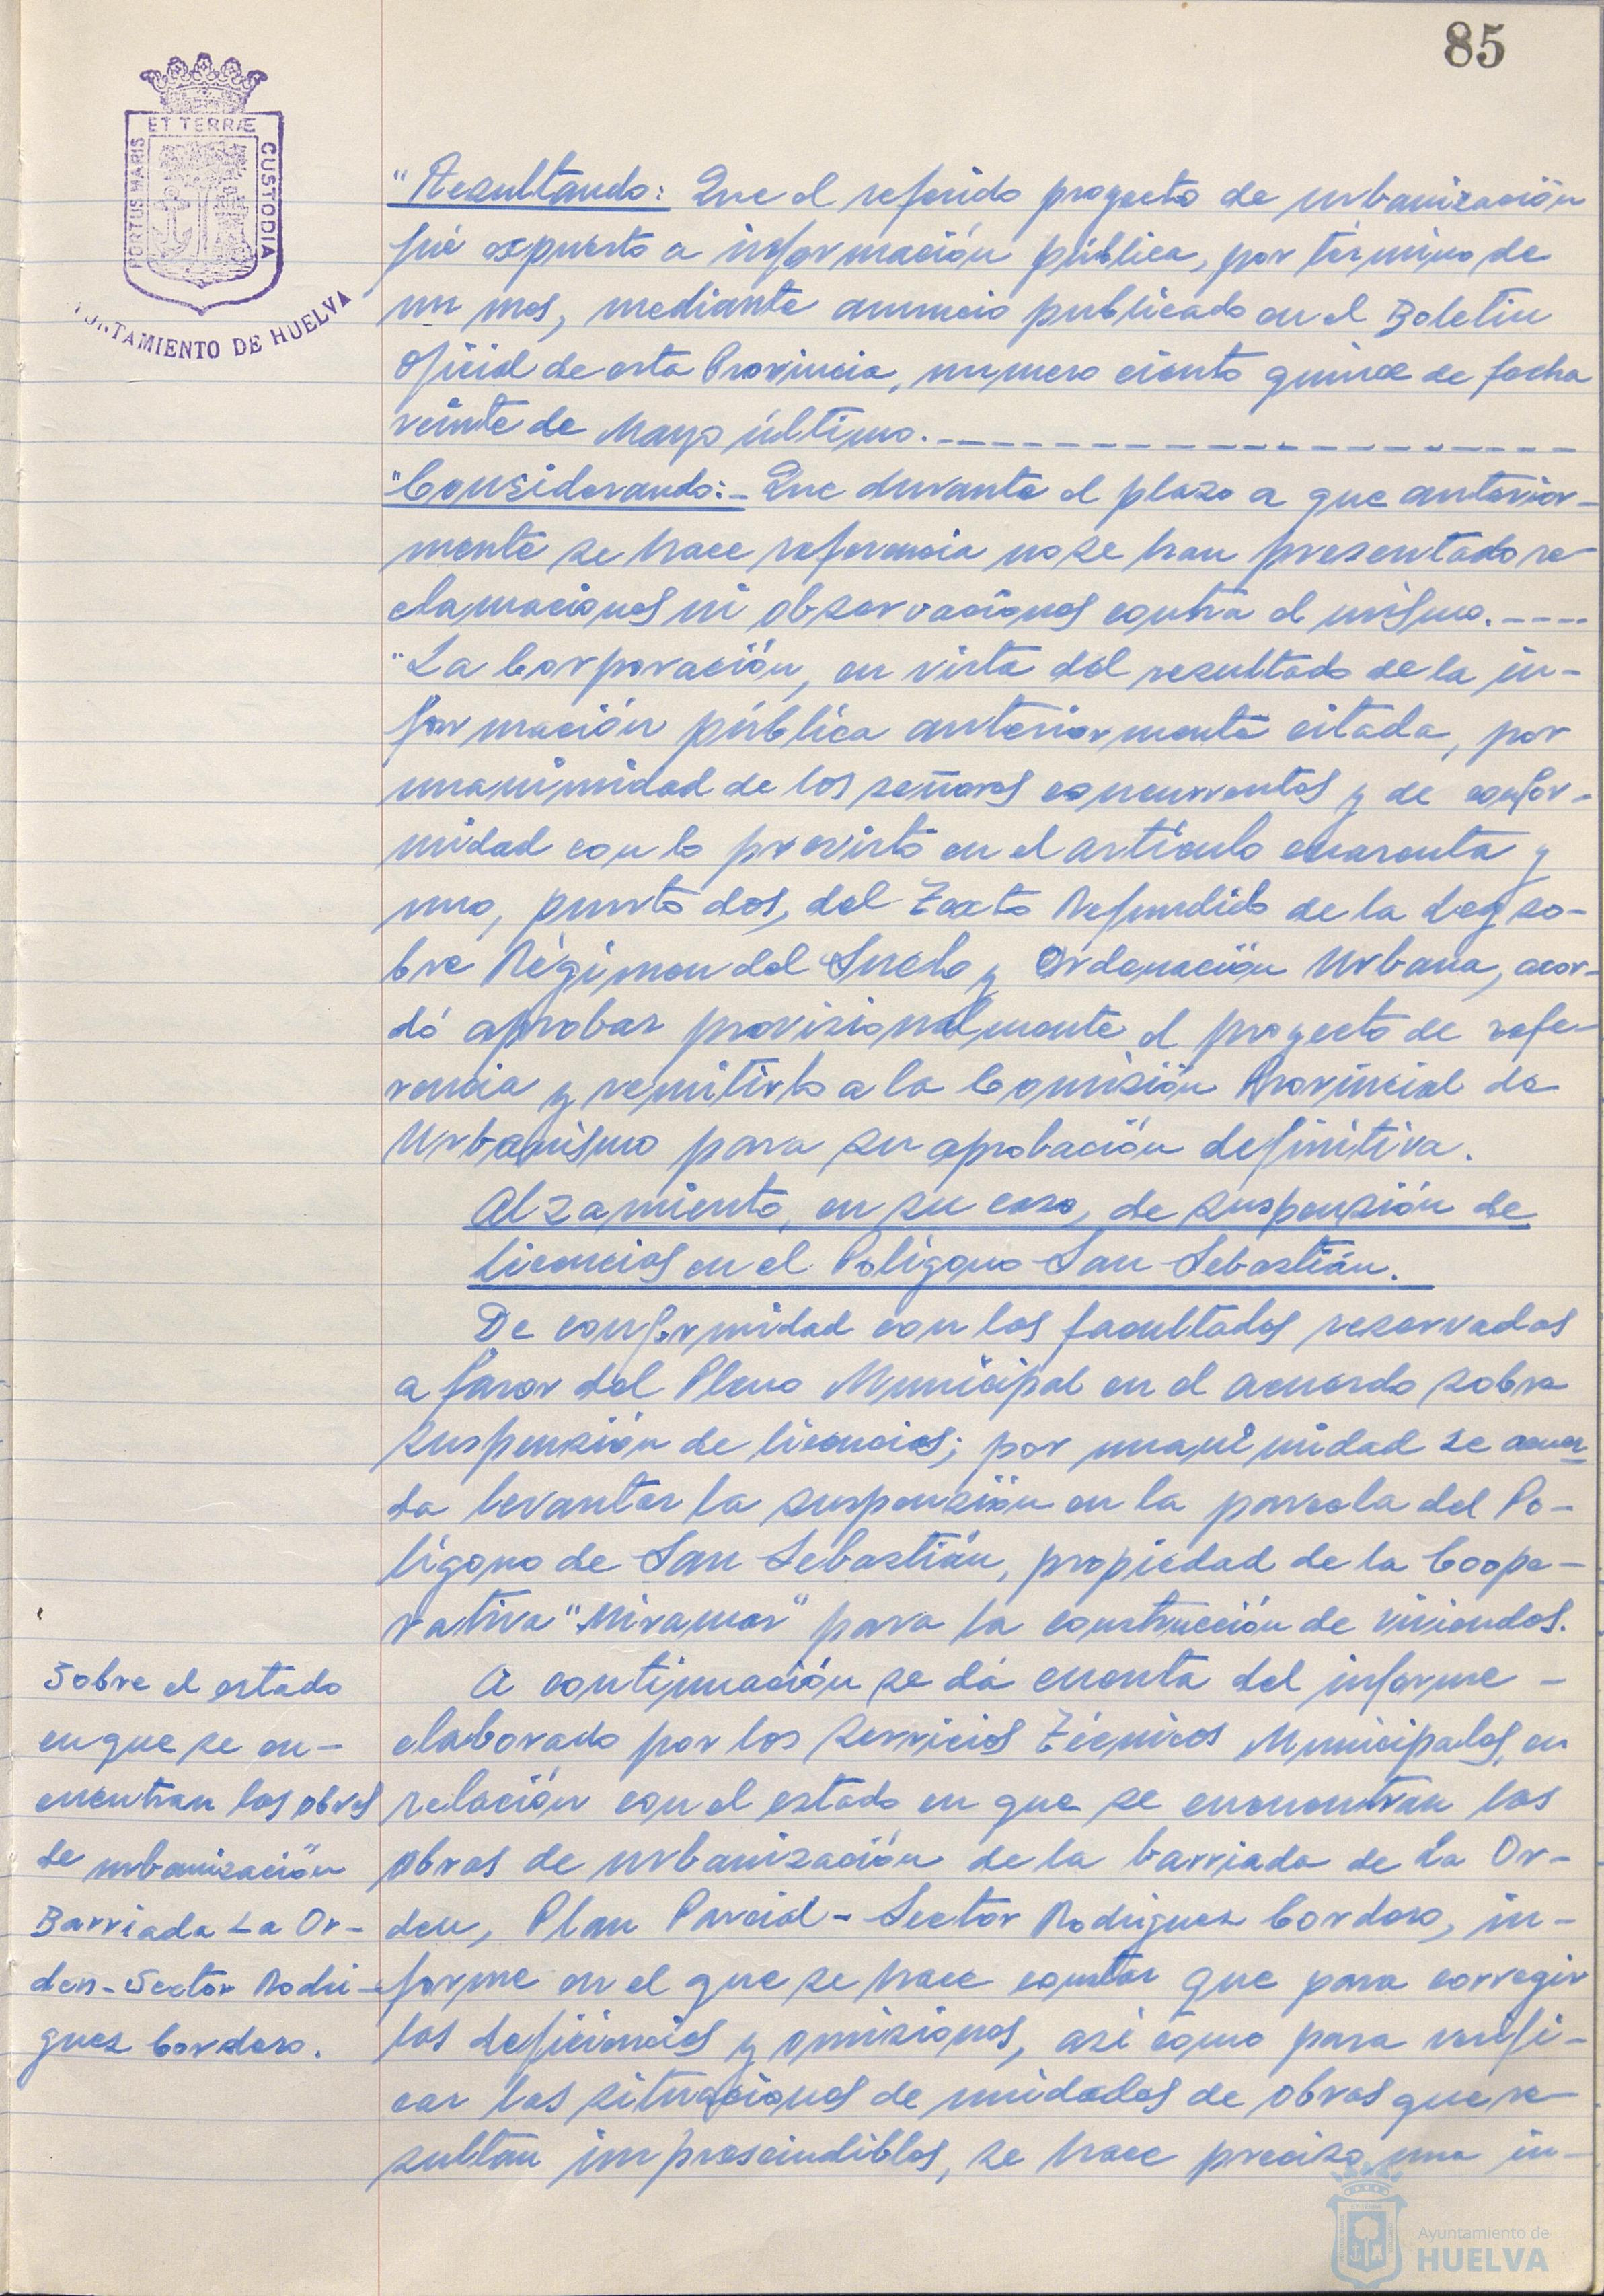 85
ET TERRÆ
PORTUS MARIS
CUSTODIA
AYUNTAMIENTO DE HUELVA
"Resultando: Que el referido proyecto de urbanización
fué expuesto a información pública, por término de
un mes, mediante anuncio publicado en el Boletin
Oficial de esta Provincia, numero ciento quince de fecha
veinte de Mayo último.
"Considerando:- Que durante el plazo a que anterior-
mente se hace referencia no se han presentado re-
clamaciones ni observaciones contra el mismo.
"La Corporación, en vista del resultado de la in-
formación pública anteriormente citada, por
unanimidad de los señores concurrentes y de confor-
midad con lo previsto en el artículo cuarenta y
uno, punto dos, del Texto Refundido de la Ley so-
bre Régimen del Suelo y Ordenación Urbana, acor-
dó aprobar provisionalmente el proyecto de refe-
rencia y remitirlo a la Comisión Provincial de
Urbanismo para su aprobación definitiva.
Alzamiento, en su caso, de suspensión de
licencias en el Polígono San Sebastián.
De conformidad con las facultades reservadas
a favor del Pleno Municipal en el acuerdo sobre
suspensión de licencias; por unanimidad se acuer
da levantar la suspensión en la parcela del Po-
lígono de San Sebastián, propiedad de la Coope-
rativa "Miramar" para la construcción de viviendas.
Sobre el estado
en que se en-
cuentran las obras
de urbanización
Barriada La Or-
den-Sector Rodri-
guez Cordoso.
A continuación se dá cuenta del informe -
elaborado por los Servicios Técnicos Municipales, en
relación con el estado en que se encuentran las
obras de urbanización de la barriada de La Or-
den, Plan Parcial - Sector Rodriguez Cordoso, in-
forme en el que se hace constar que para corregir
las deficiencias y omisiones, así como para verifi-
car las situaciones de unidades de obras que re-
sultan imprescindibles, se hace preciso una in-
Ayuntamiento de
HUELVA